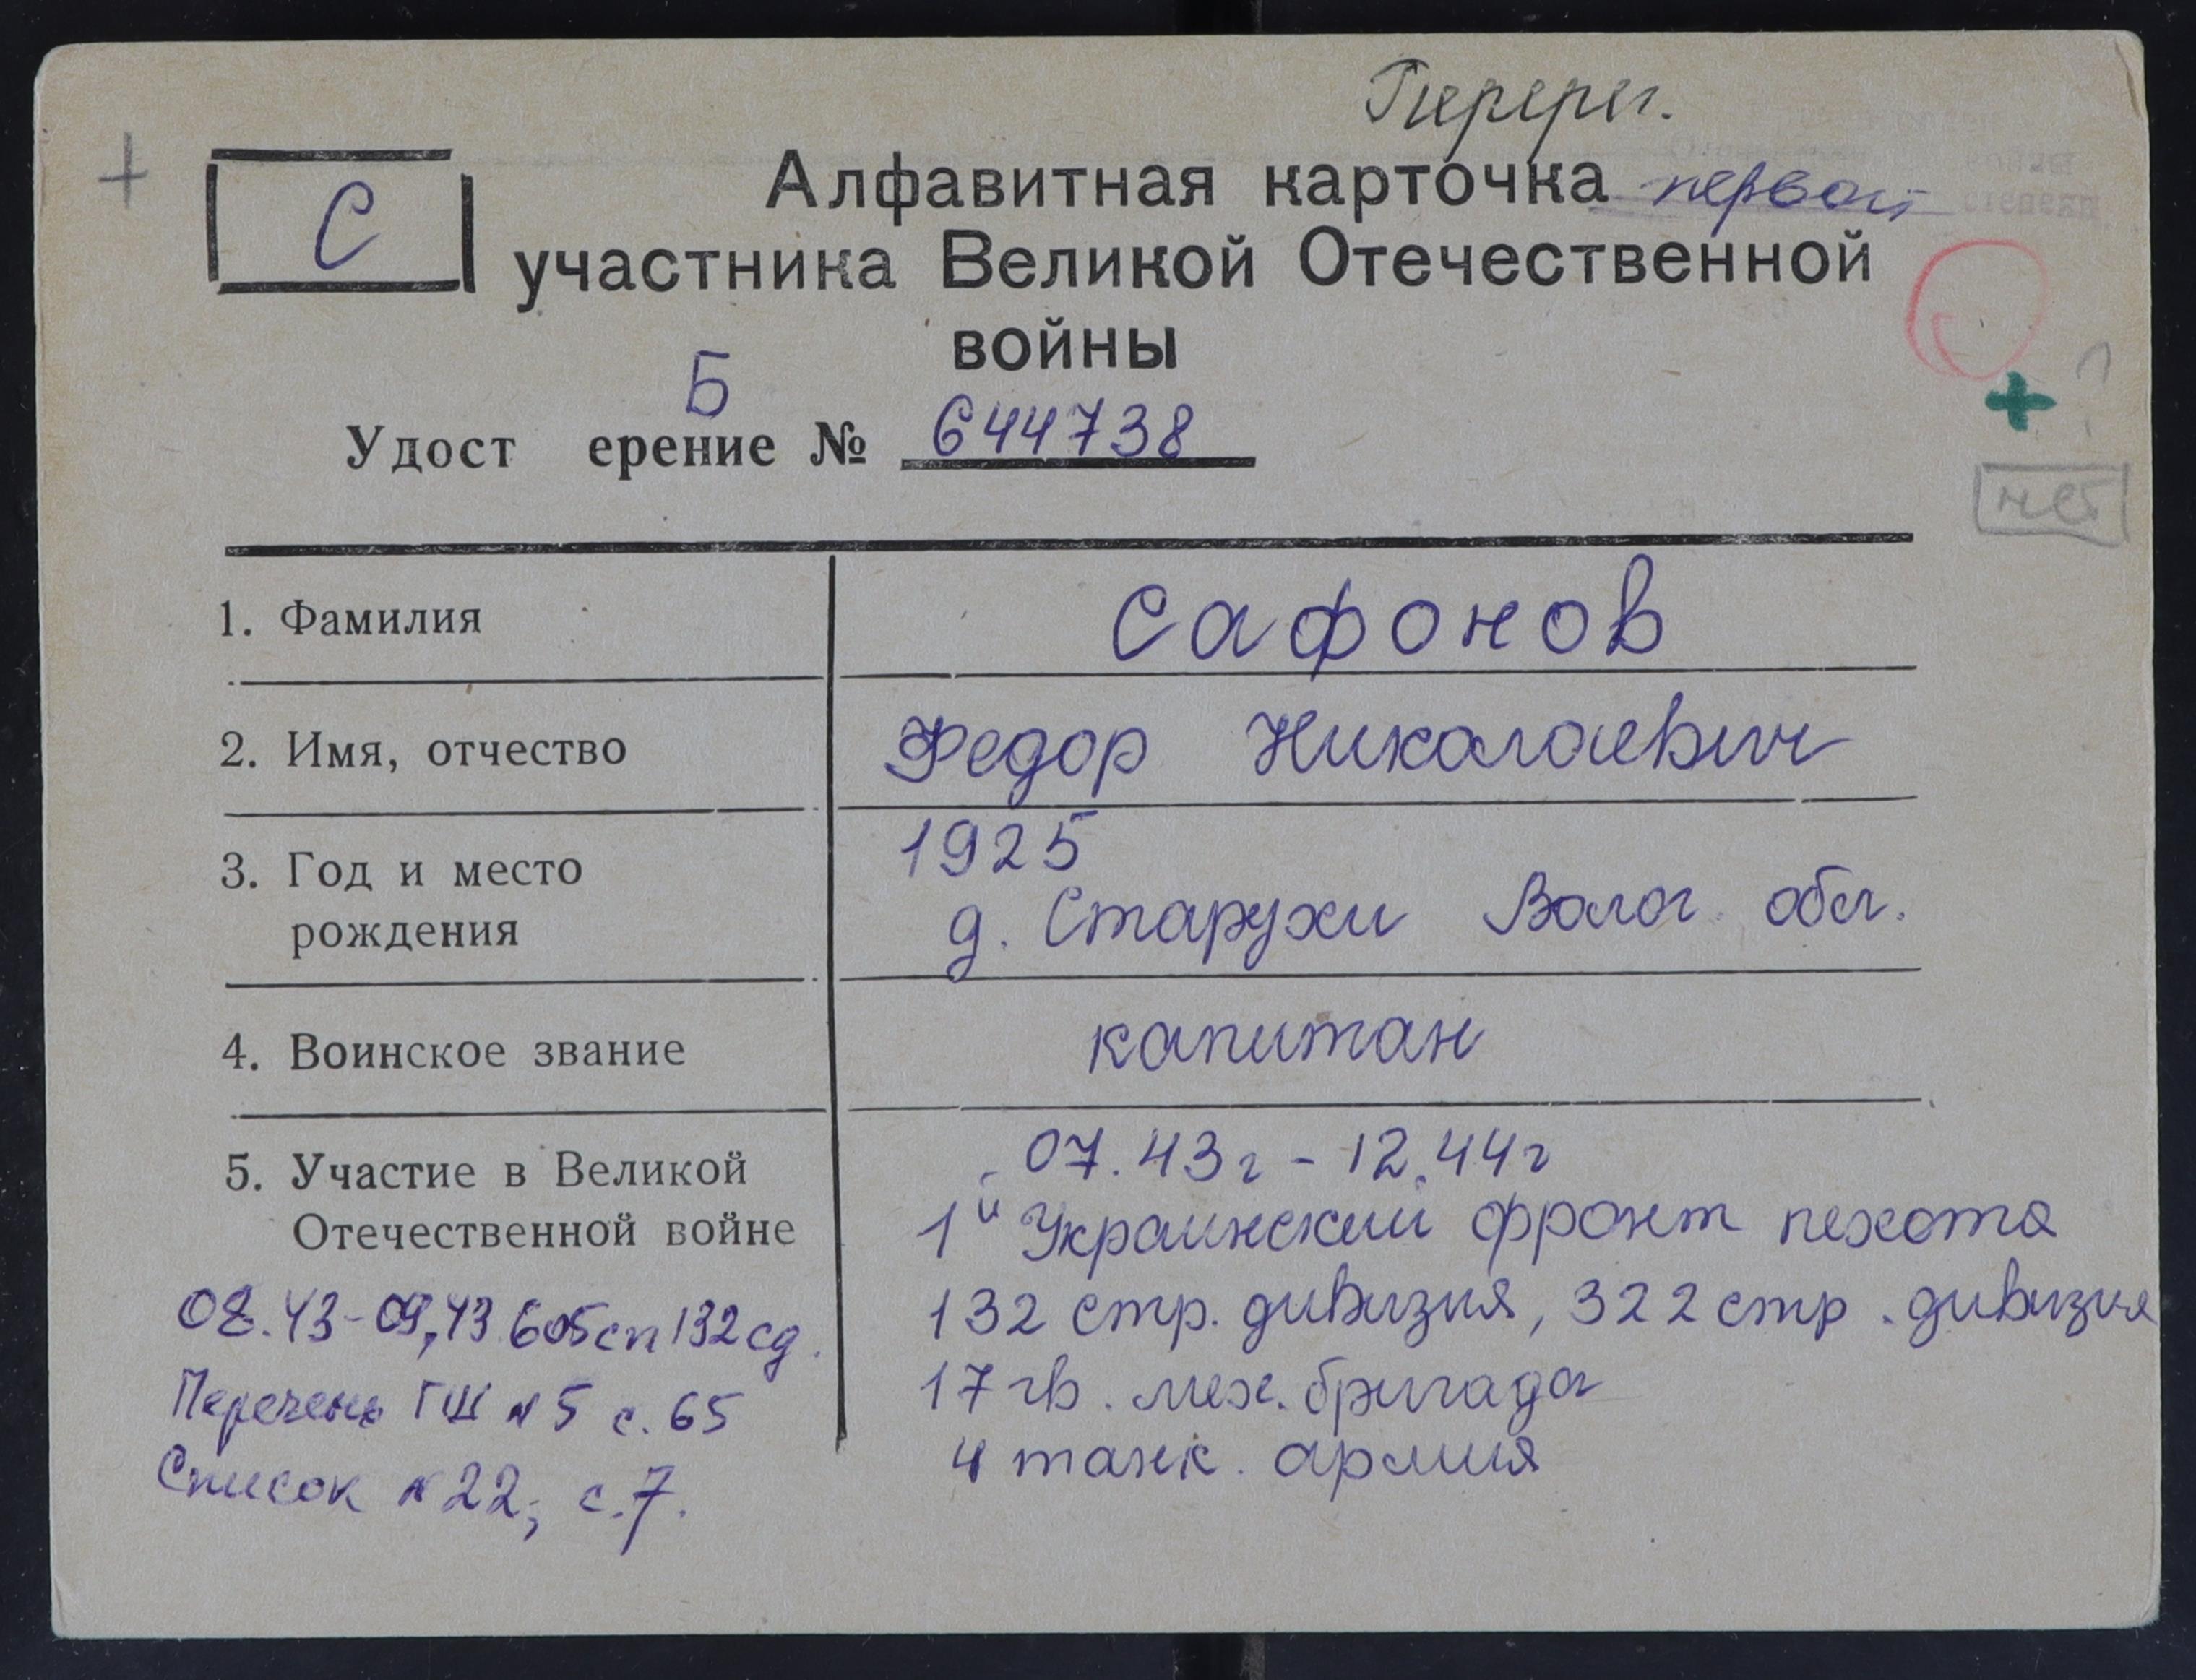 Перерег.
Алфавитная карточка первой
С
участника Великой Отечественной
войны
Б
Удост ерение № 644738
нет
1. Фамилия Сафонов
2. Имя, отчество Федор Николаевич
3. Год и место 1925
рождения д. Старухи Волог обл.
4. Воинское звание капитан
5. Участие в Великой 07.43г - 12.44г
Отечественной войне 1й Украинский фронт пехота
08.43-09,43 605сп 132сд. 132 стр. дивизия, 322 стр. дивизия
Перечень ГШ №5 с. 65 17 гв. мех. бригада
Список №22, с.7. 4 танк. армия